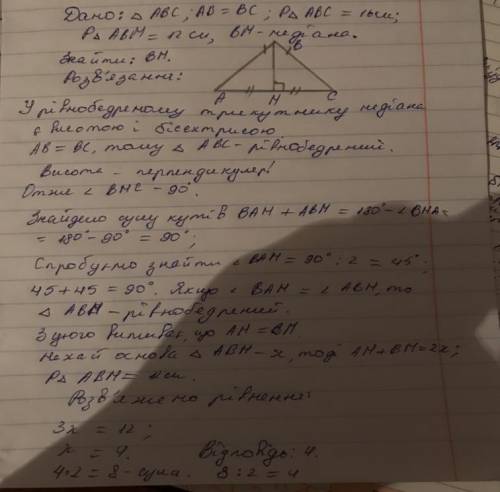 Дано: △ ABC; AB = BC; P△ ABC = 16см;
P△ ABH = 12 см, BH - медіана.
Знайти: BH.
Розв'язання:
B
A H C
У рівнобедреному трикутнику медіана
є висотою і бісектрисою.
AB = BC, тому △ ABC - рівнобедрений.
Висота - перпендикуляр!
Отже ∠ BHC - 90°.
Знайдемо суму кутів BAH + ABH = 180° - ∠ BHA =
= 180° - 90° = 90°;
Спробуємо знайти ∠ BAH = 90° : 2 = 45°;
45 + 45 = 90°. Якщо ∠ BAH = ∠ ABH, то
△ ABH - рівнобедрений.
З цього випливає, що AH = BH.
Нехай основа △ ABH - x, тоді AH + BH = 2x;
P△ ABH = 12 см.
Розв'яжемо рівняння:
3x = 12;
x = 4. Відповідь: 4.
4·2 = 8 - сума. 8 : 2 = 4